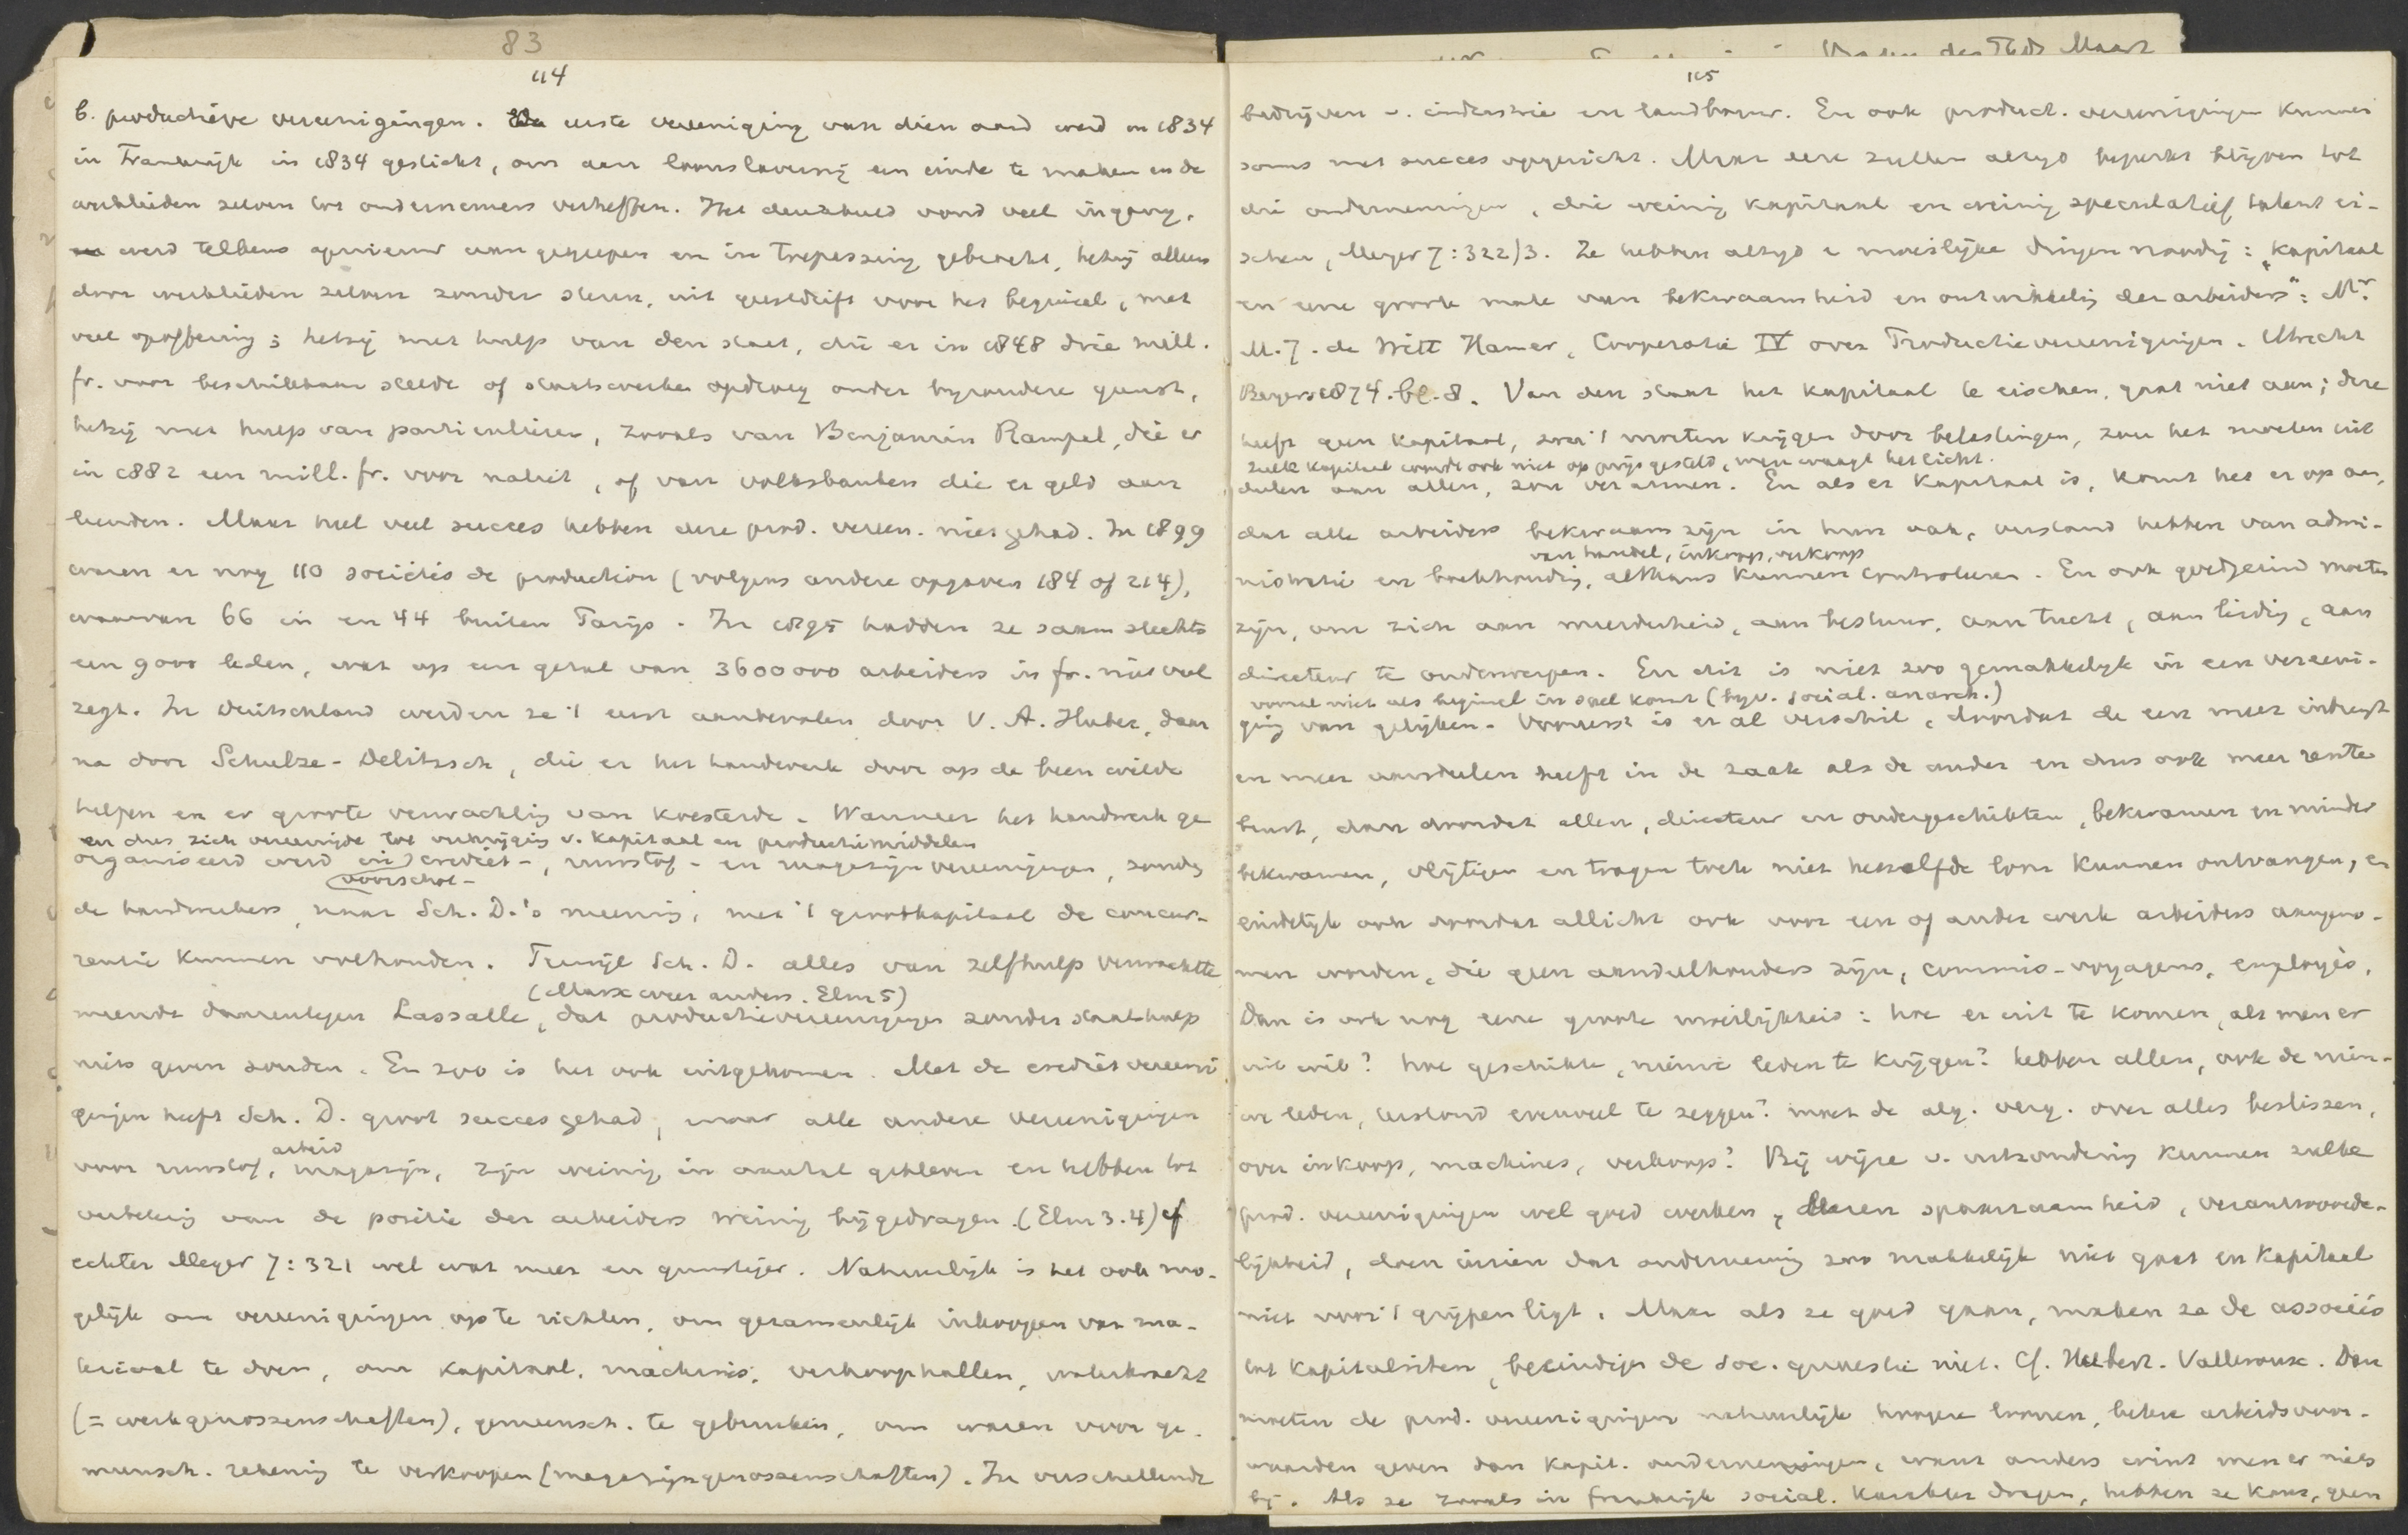 83
114
b. productieve vereenigingen. De eerste vereeniging van dien aard werd in 1834
in Frankrijk in 1834 gesticht, om aan loonslavernij een einde te maken en de
arbeiders zelven tot ondernemers verheffen. Het denkbeeld vond veel ingang,
werd telkens opnieuw aangegrepen en in toepassing gebracht, hetzij alleen
door werklieden zelven zonder steun, uit geestdrift voor het beginsel, met
veel opoffering; hetzij met hulp van den staat, die er in 1848 drie mill.
fr. voor beschikbaar stelde of staatswerken opdroeg onder byzondere gunst,
hetzij met hulp van particulieren, zooals van Benjamin Rampal, die er
in 1882 een mill. fr. voor naliet, of van volksbanken die er geld aan
leenden. Maar heel veel succes hebben deze prod. vereen. niet gehad. In 1899
waren er nog 110 sociétés de production (volgens andere opgaven 184 of 214),
waarvan 66 in en 44 buiten Parijs. In 1895 hadden ze saam slechts
een 9000 leden, wat op een getal van 3600000 arbeiders in fr. niet veel
zegt. In Deutschland werden ze 't eerst aanbevolen door V. A. Huber, daar
na door Schulze-Delitzsch, die er het handwerk door op de been wilde
helpen en er groote verwachting van koesterde. Wanneer het handwerk ge
en dus zich vereenigde tot verkrijging v. kapitaal en productiemiddelen
organiseerd werd in crediet-, grondstof- en magazijnvereenigingen, zouden
voorschot-
de handwerkers, naar Sch. D.'s meening, met 't grootkapitaal de concur-
rentie kunnen volhouden. Terwijl Sch. D. alles van zelfhulp verwachtte
(Marx weer anders. Elm 5)
meende daarentegen Lassalle, dat productievereenigingen zonder staatshulp
niets geven zouden. En zoo is het ook uitgekomen. Met de credietvereeni
gingen heeft Sch. D. groot succes gehad, maar alle andere vereenigingen
arbeid
voor grondstof, magazijn, zijn weinig in aantal gebleven en hebben tot
verbetering van de positie der arbeiders weinig bijgedragen. (Elm 3.4) cf
echter Meyer 7:321 wel wat meer en gunstiger. Natuurlijk is het ook mo-
gelijk om vereenigingen op te richten, om gezamenlijk inkoopen van ma-
teriaal te doen, om kapitaal, machines, verkoophallen, waterkracht
(= werkgenossenschaften), gemeensch. te gebruiken, om waren voor ge-
meensch. rekening te verkoopen (magazijngenossenschaften). In verschillende
115
bedrijven v. industrie en landbouw. En ook product. vereenigingen kunnen
soms met succes opgericht. Maar deze zullen altijd beperkt blijven tot
die ondernemingen, die weinig kapitaal en weinig speculatief talent ei-
schen, Meyer 7:322/3. Ze hebben altyd 2 moeilijke dingen noodig: "kapitaal
en eene groote mate van bekwaamheid en ontwikkeling der arbeiders": Mr.
M. J. de Witt Hamer, Cooperatie IV over Productievereenigingen. Utrecht
Beijers 1874. bl. 8. Van den staat het kapitaal te eischen, gaat niet aan; deze
heeft geen kapitaal, zou 't moeten krijgen door belastingen, zou het moeten uit
zulk kapitaal wordt ook niet op prijs gesteld, men waagt het licht.
deelen aan allen, zou verarmen. En als er kapitaal is, komt het er op aan,
dat alle arbeiders bekwaam zijn in hun vak, verstand hebben van admi-
van handel, inkoop, verkoop
nistratie en boekhouding, althans kunnen controleren. En ook goedgezind moeten
zijn, om zich aan meerderheid, aan bestuur, aan tucht, aan leiding, aan
directeur te onderwerpen. En dit is niet zoo gemakkelijk in een vereeni-
vooral niet als beginsel in spel komt (bijv. social. anarch.)
ging van gelijken. Vooreerst is er al verschil, doordat de een meer inbrengt
en meer aandeelen heeft in de zaak als de ander en dus ook meer rente
beurt, dan doordat allen, directeur en ondergeschikten, bekwamen en minder
bekwamen, vlijtigen en tragen toch niet hetzelfde loon kunnen ontvangen, en
eindelijk ook doordat allicht ook voor een of ander werk arbeiders aangeno-
men worden, die geen aandeelhouders zijn, commis-voyageurs, employés.
Dan is ook nog eene groote moeilijkheid: hoe er uit te komen, als men er
uit wil? hoe geschikte, nieuwe leden te krijgen? hebben allen, ook de nieu-
we leden, terstond evenveel te zeggen? moet de alg. verg. over alles beslissen,
over inkoop, machines, verkoop? Bij wijze v. uitzondering kunnen zulke
prod. vereenigingen wel goed werken, leeren spaarzaamheid, verantwoorde-
lijkheid, doen inzien dat onderneming zoo makkelijk niet gaat en kapitaal
niet voor 't grijpen ligt. Maar als ze goed gaan, maken ze de associés
tot kapitalisten, beeindigen de soc. quaestie niet. Cf. Hubert-Valleroux. Dan
moeten de prod. vereenigingen natuurlijk hoogere loonen, betere arbeidsvoor-
waarden geven dan kapit. ondernemingen, want anders wint men er niets
bij. Als ze zooals in frankrijk social. karakter dragen, hebben ze kans, geen